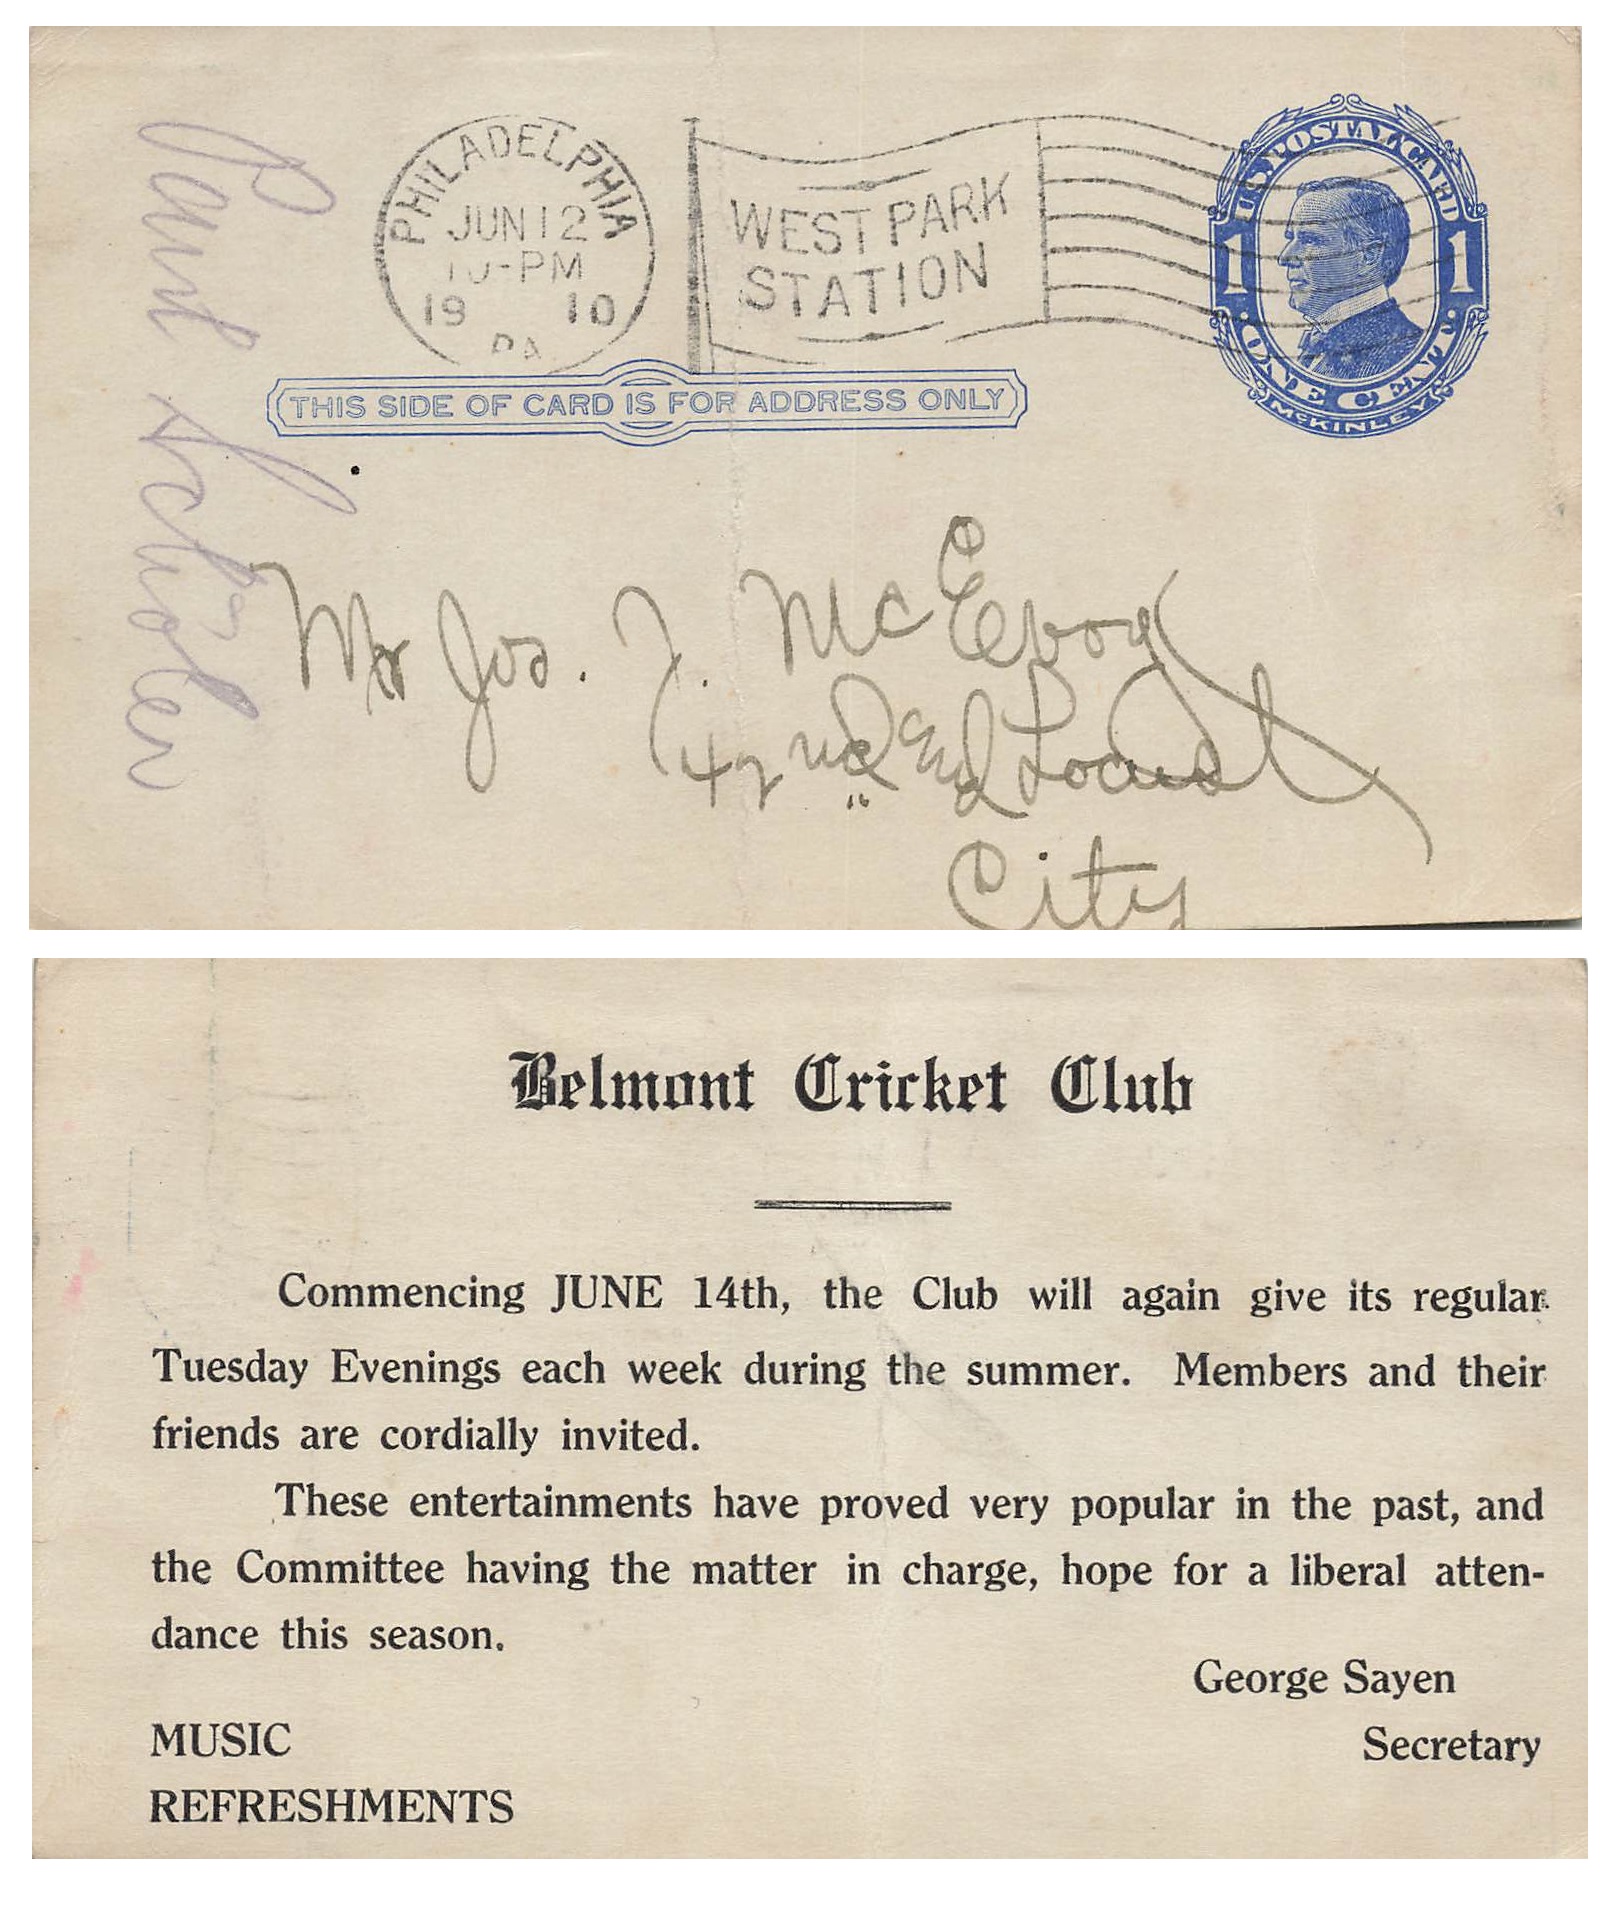 PHILADELPHIA
JUN 12
10-PM
1910
PA
WEST PARK
STATION
U.S. POSTAL CARD
1 1
ONE CENT
McKINLEY
THIS SIDE OF CARD IS FOR ADDRESS ONLY
Paul Scholer
Mr Jos. J. McEvoy
42nd and Locust
City
Belmont Cricket Club
Commencing JUNE 14th, the Club will again give its regular
Tuesday Evenings each week during the summer. Members and their
friends are cordially invited.
These entertainments have proved very popular in the past, and
the Committee having the matter in charge, hope for a liberal atten-
dance this season.
George Sayen
Secretary
MUSIC
REFRESHMENTS